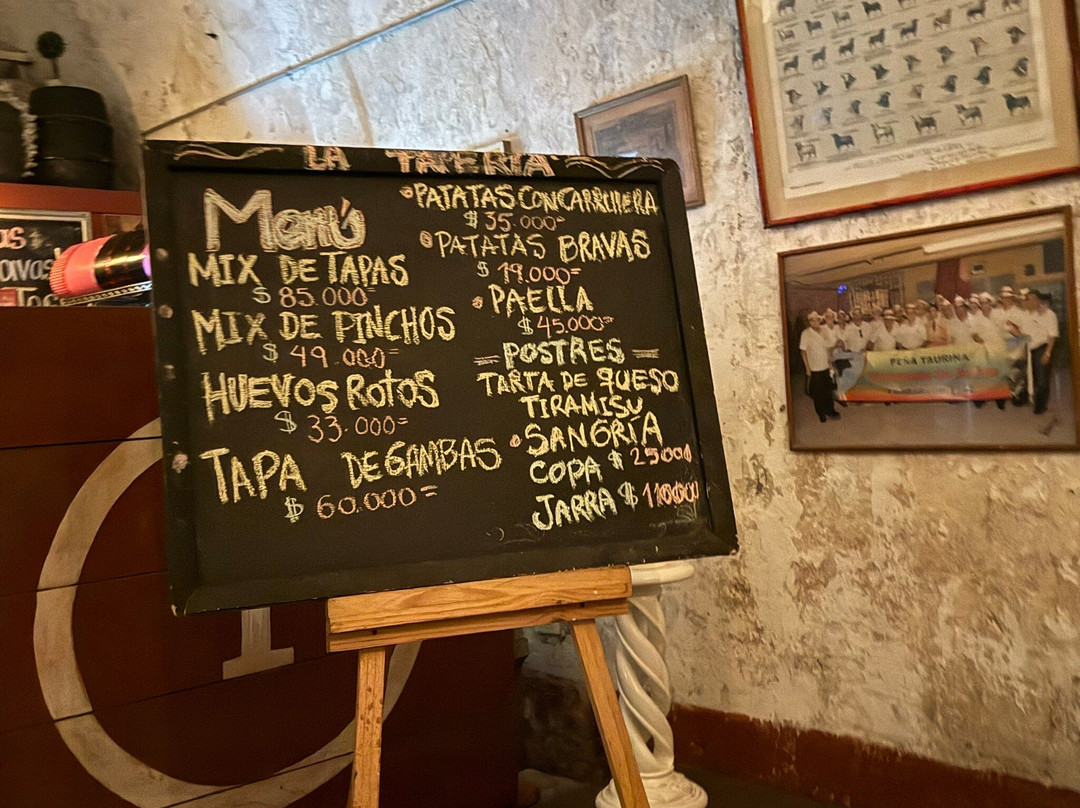 LA TAPERIA
Menú
MIX DE TAPAS
$ 85.000=
MIX DE PINCHOS
$ 49.000=
HUEVOS ROTOS
$ 33.000=
TAPA DE GAMBAS
$ 60.000=
• PATATAS CON CARRILLERA
$ 35.000=
• PATATAS BRAVAS
$ 19.000=
• PAELLA
$ 45.000=
= POSTRES =
TARTA DE QUESO
TIRAMISU
• SANGRÍA
COPA $ 25000
JARRA $ 110000
PEÑA TAURINA